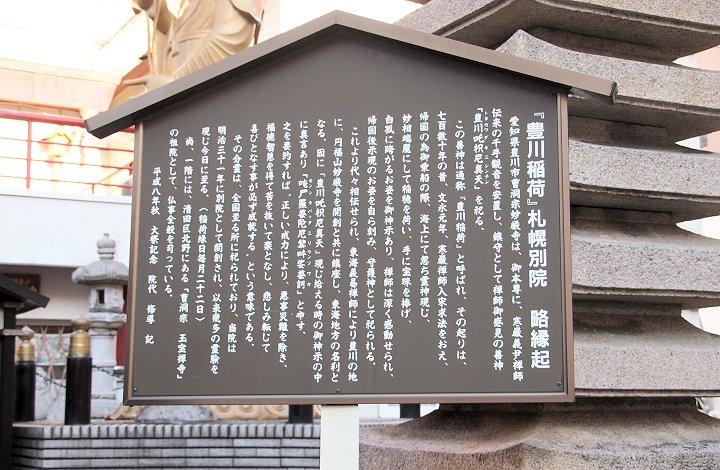 『豊川稲荷』札幌別院　略縁起
愛知県豊川市曹洞宗妙厳寺は、御本尊に、寒巌義尹禅師
伝来の千手観音を安置し、鎮守として禅師御感見の善神
『豊川吒枳尼真天』を祀る。
この善神は通称『豊川稲荷』と呼ばれ、その起りは、
七百数十年の昔、文永元年、寒巌禅師入宋求法をおえ、
帰国の為御乗船の際、海上にて忽ち霊神現じ、
妙相端麗にして稲穂を荷い、手に宝珠を捧げ、
白狐に跨がるお姿を御神示あり、禅師は深く感動せられ、
帰国後示現のお姿を自ら刻み、守護神として祀られる。
これより代々相伝せられ、東海義易禅師により豊川の地
に、円福山妙厳寺を開創と共に鎮座し、東海地方の名刹と
なる。因に『豊川吒枳尼真天』現じ給える時の御神示の中
に真言あり『唵尸羅婆陀尼黎吽娑婆訶』と申す。
之を要約すれば、正しい戒力により、悪事災難を除き、
福徳智慧を得て苦を抜いて楽となし、悲しみ転じて
喜びとなす事が必ず成就する。という意味である。
その分霊は、全国至る所に祀られており、当院は
明治三十一年に別院として開創され、以来幾多の霊験を
現じ今日に至る。（稲荷縁日毎月二十二日）
尚、一階には、清田区北野にある『曹洞宗　玉宝禅寺』
の祖院として、仏事全般を司っている。
平成八年秋　大祭記念　院代　修導　記